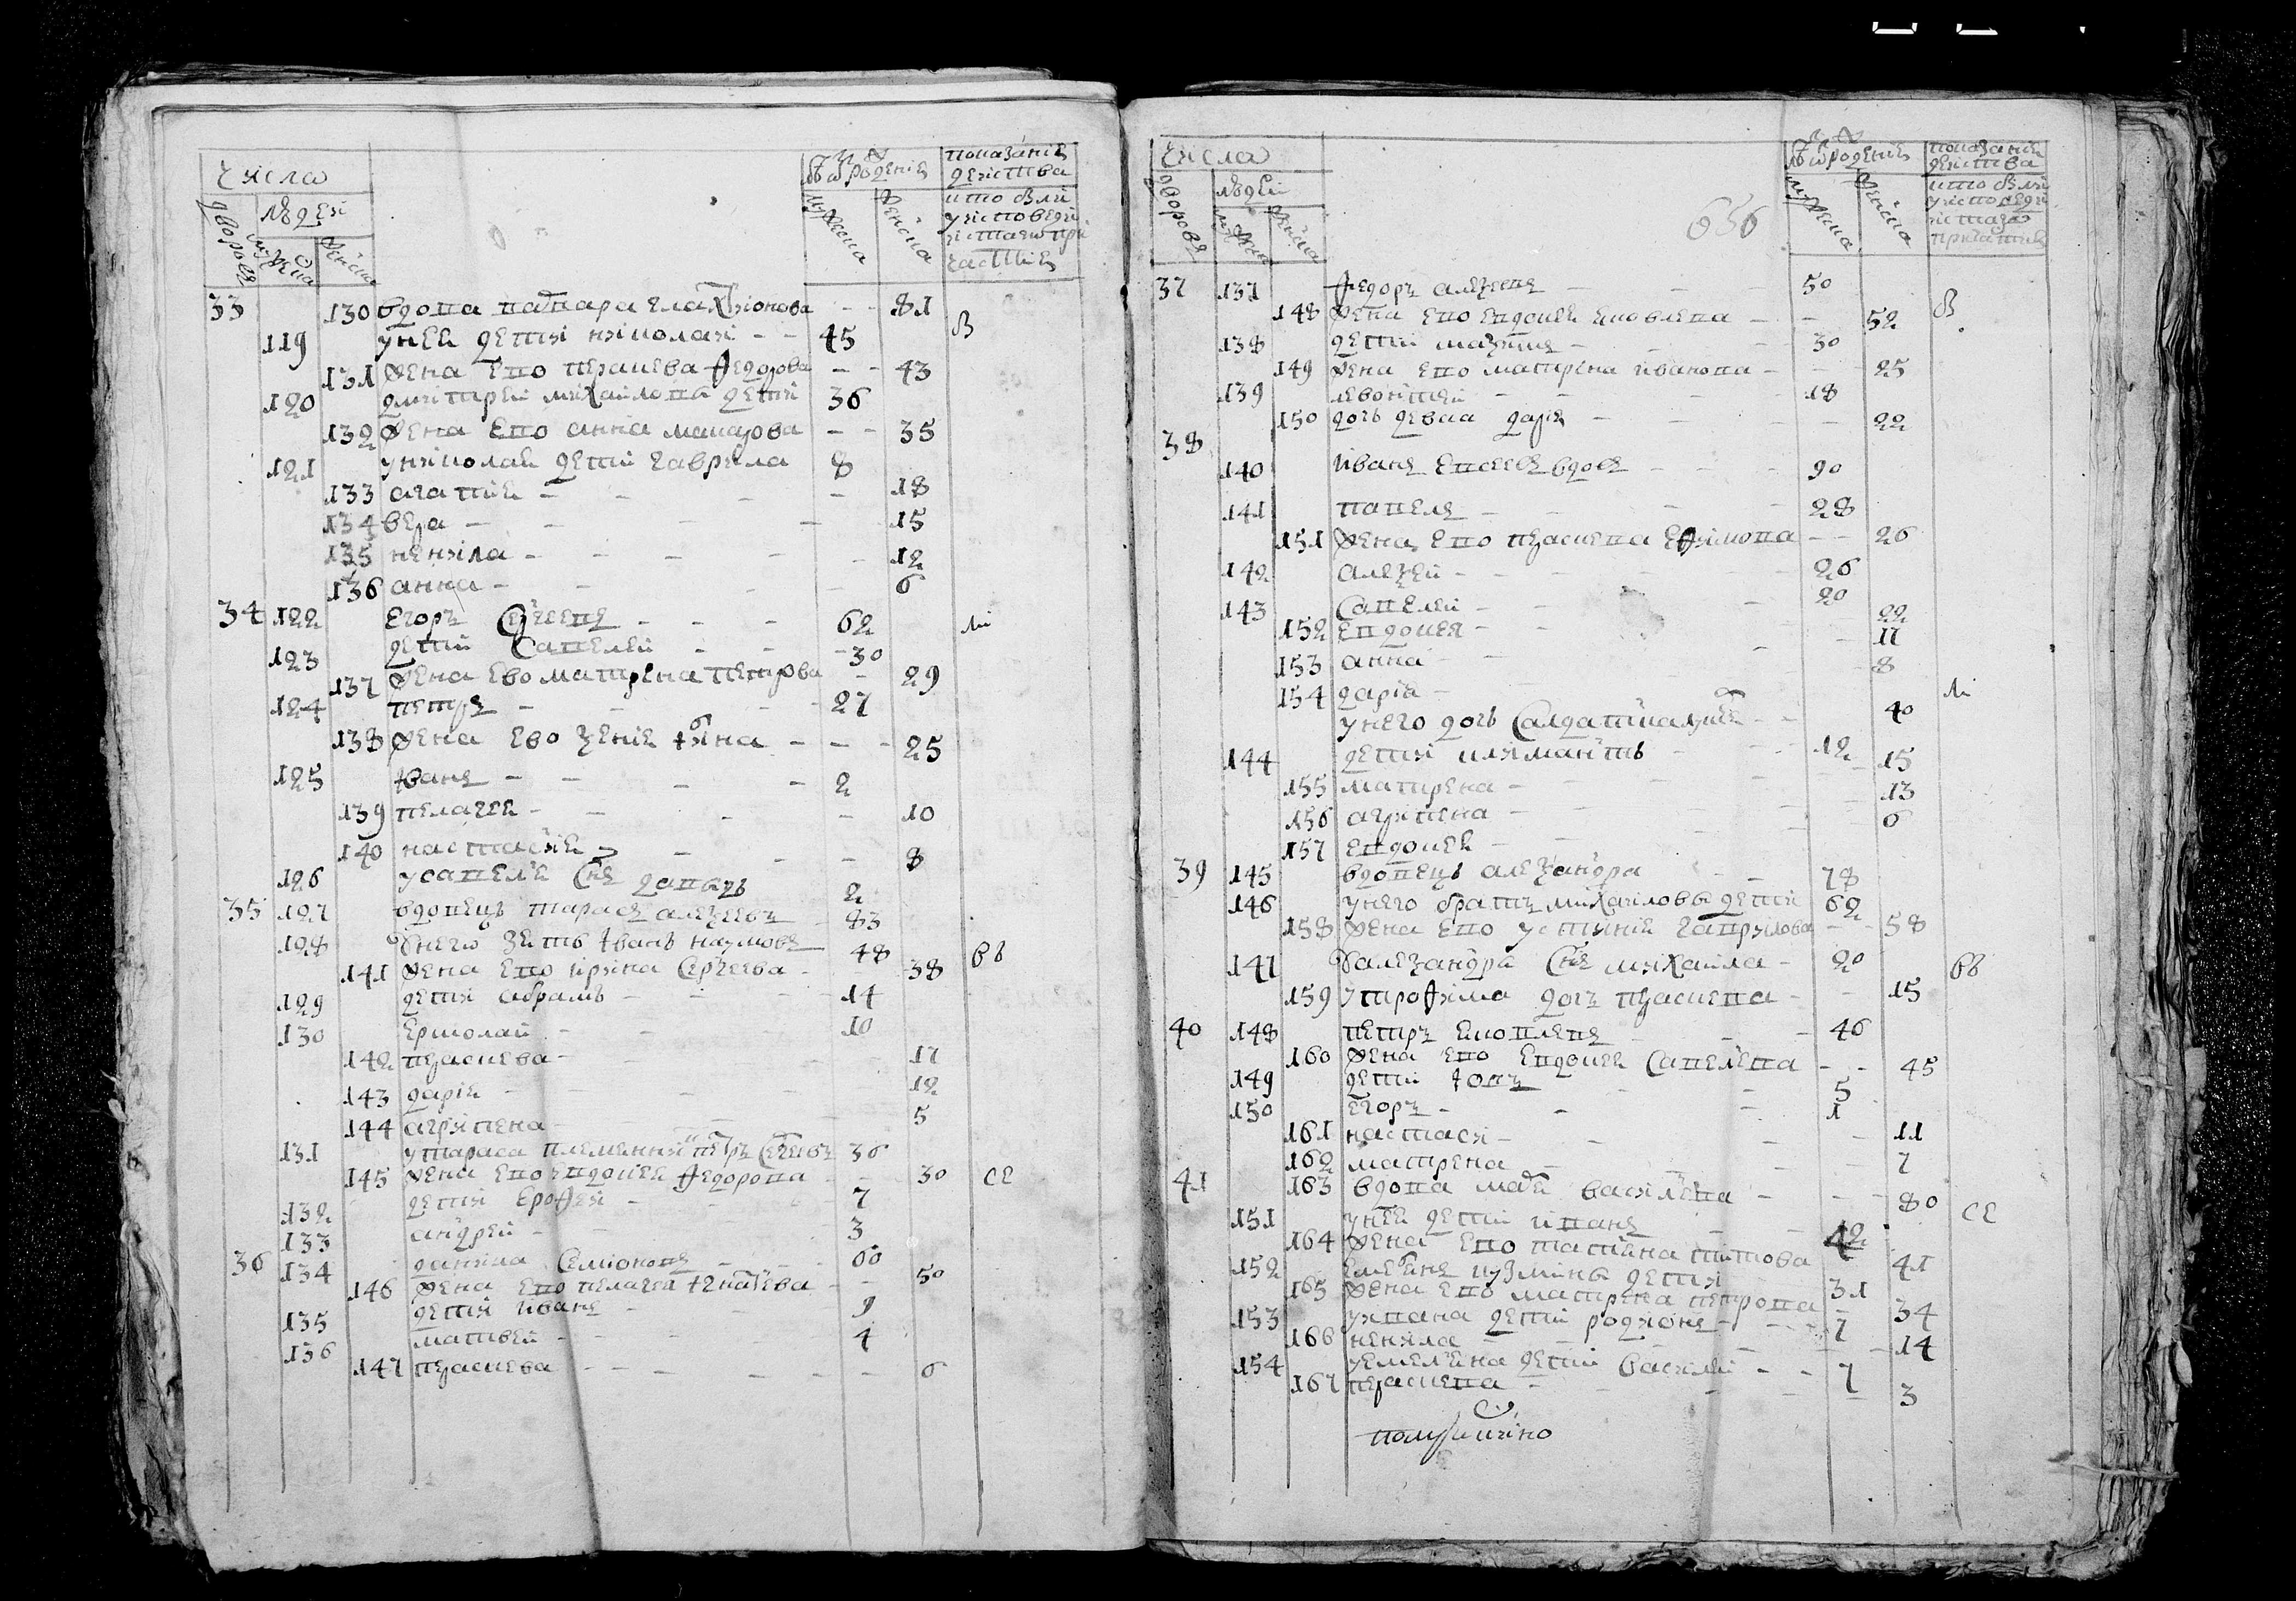 числа
людей
дворовъ
мужеска
женска
лѣта рожения
мужеска
женска
показание
действа
кто былъ
у исповеди
и таинъ при
частия
33 130 вдова варвара илларионова 81
119 у ней дети николай 45 в
131 жена ево прасковья федорова 43
120 дмитрей михайловы дети 36
132 жена ево анна макарова 35
121 у николая дети гаврила 8
133 агапия 18
134 вера 15
135 ненила 12
136 анна 6
34 122 егоръ сергеевъ 62
123 дети савелей 30
137 жена ево матрена петрова 29
124 петръ 27
138 жена ево ксения 25
125 иванъ 2
139 пелагея 10
140 настасия 8
126 у савелья снъ давыдъ 2
35 127 вдовецъ тарасъ алексеевъ 83
128 у него зять иванъ наумовъ 48 вв
141 жена ево ирина сергеева 38
129 дети абрамъ 14
130 ермолай 10
142 прасковья 17
143 дария 12
144 агрипена 5
131 у тараса племянникъ петръ сергеевъ 36
145 жена ево евдокея федорова 30 се
132 дети ерофей 7
133 андрей 3
36 134 данила семионовъ 60
146 жена ево пелагея игнатьева 50
135 дети иванъ 9
136 матвей 4
147 прасковья 6
числа
людей
дворовъ
мужеска
женска
656
лѣта рожения
мужеска
женска
показание
действа
кто былъ
у исповеди
и таинъ
причастия
37 137 федоръ алексеевъ 50
148 жена ево евдокея яковлева 52 в
138 дети максимъ 30
149 жена ево матрена иванова 25
139 левонтей 18
150 дочь девка дарья 22
38
140 иванъ евсеевъ вдовъ 90
141 павелъ 28
151 жена ево прасковья ефимова 26
142 алексей 26
143 савелей 20
152 евдокея 22
153 анна 17
154 дария 8
у него дочь салдатка 40
144 дети климантъ 12
155 матрена 15
156 агрипена 13
157 евдокея 6
39 145 вдовецъ александра 78
146 у него братъ михайловы дети 62
158 жена ево устиния гаврилова 58
147 у александра снъ михайла 20 вв
159 у трофима дочь прасковья 15
40 148 петръ яковлевъ 46
160 жена ево евдокея савельева 45
149 дети 5
150 егоръ 1
161 настася 11
162 матрена 7
41 163 вдова васильева 80 се
151 у ней дети иванъ 42
164 жена ево татьяна титова 41
152 емельянъ кузмины дети 31
165 жена ево матрена петрова 34
153 у ивана дети родионъ 7
166 ненила 14
154 у емельяна дети василей 7
167 прасковья 3